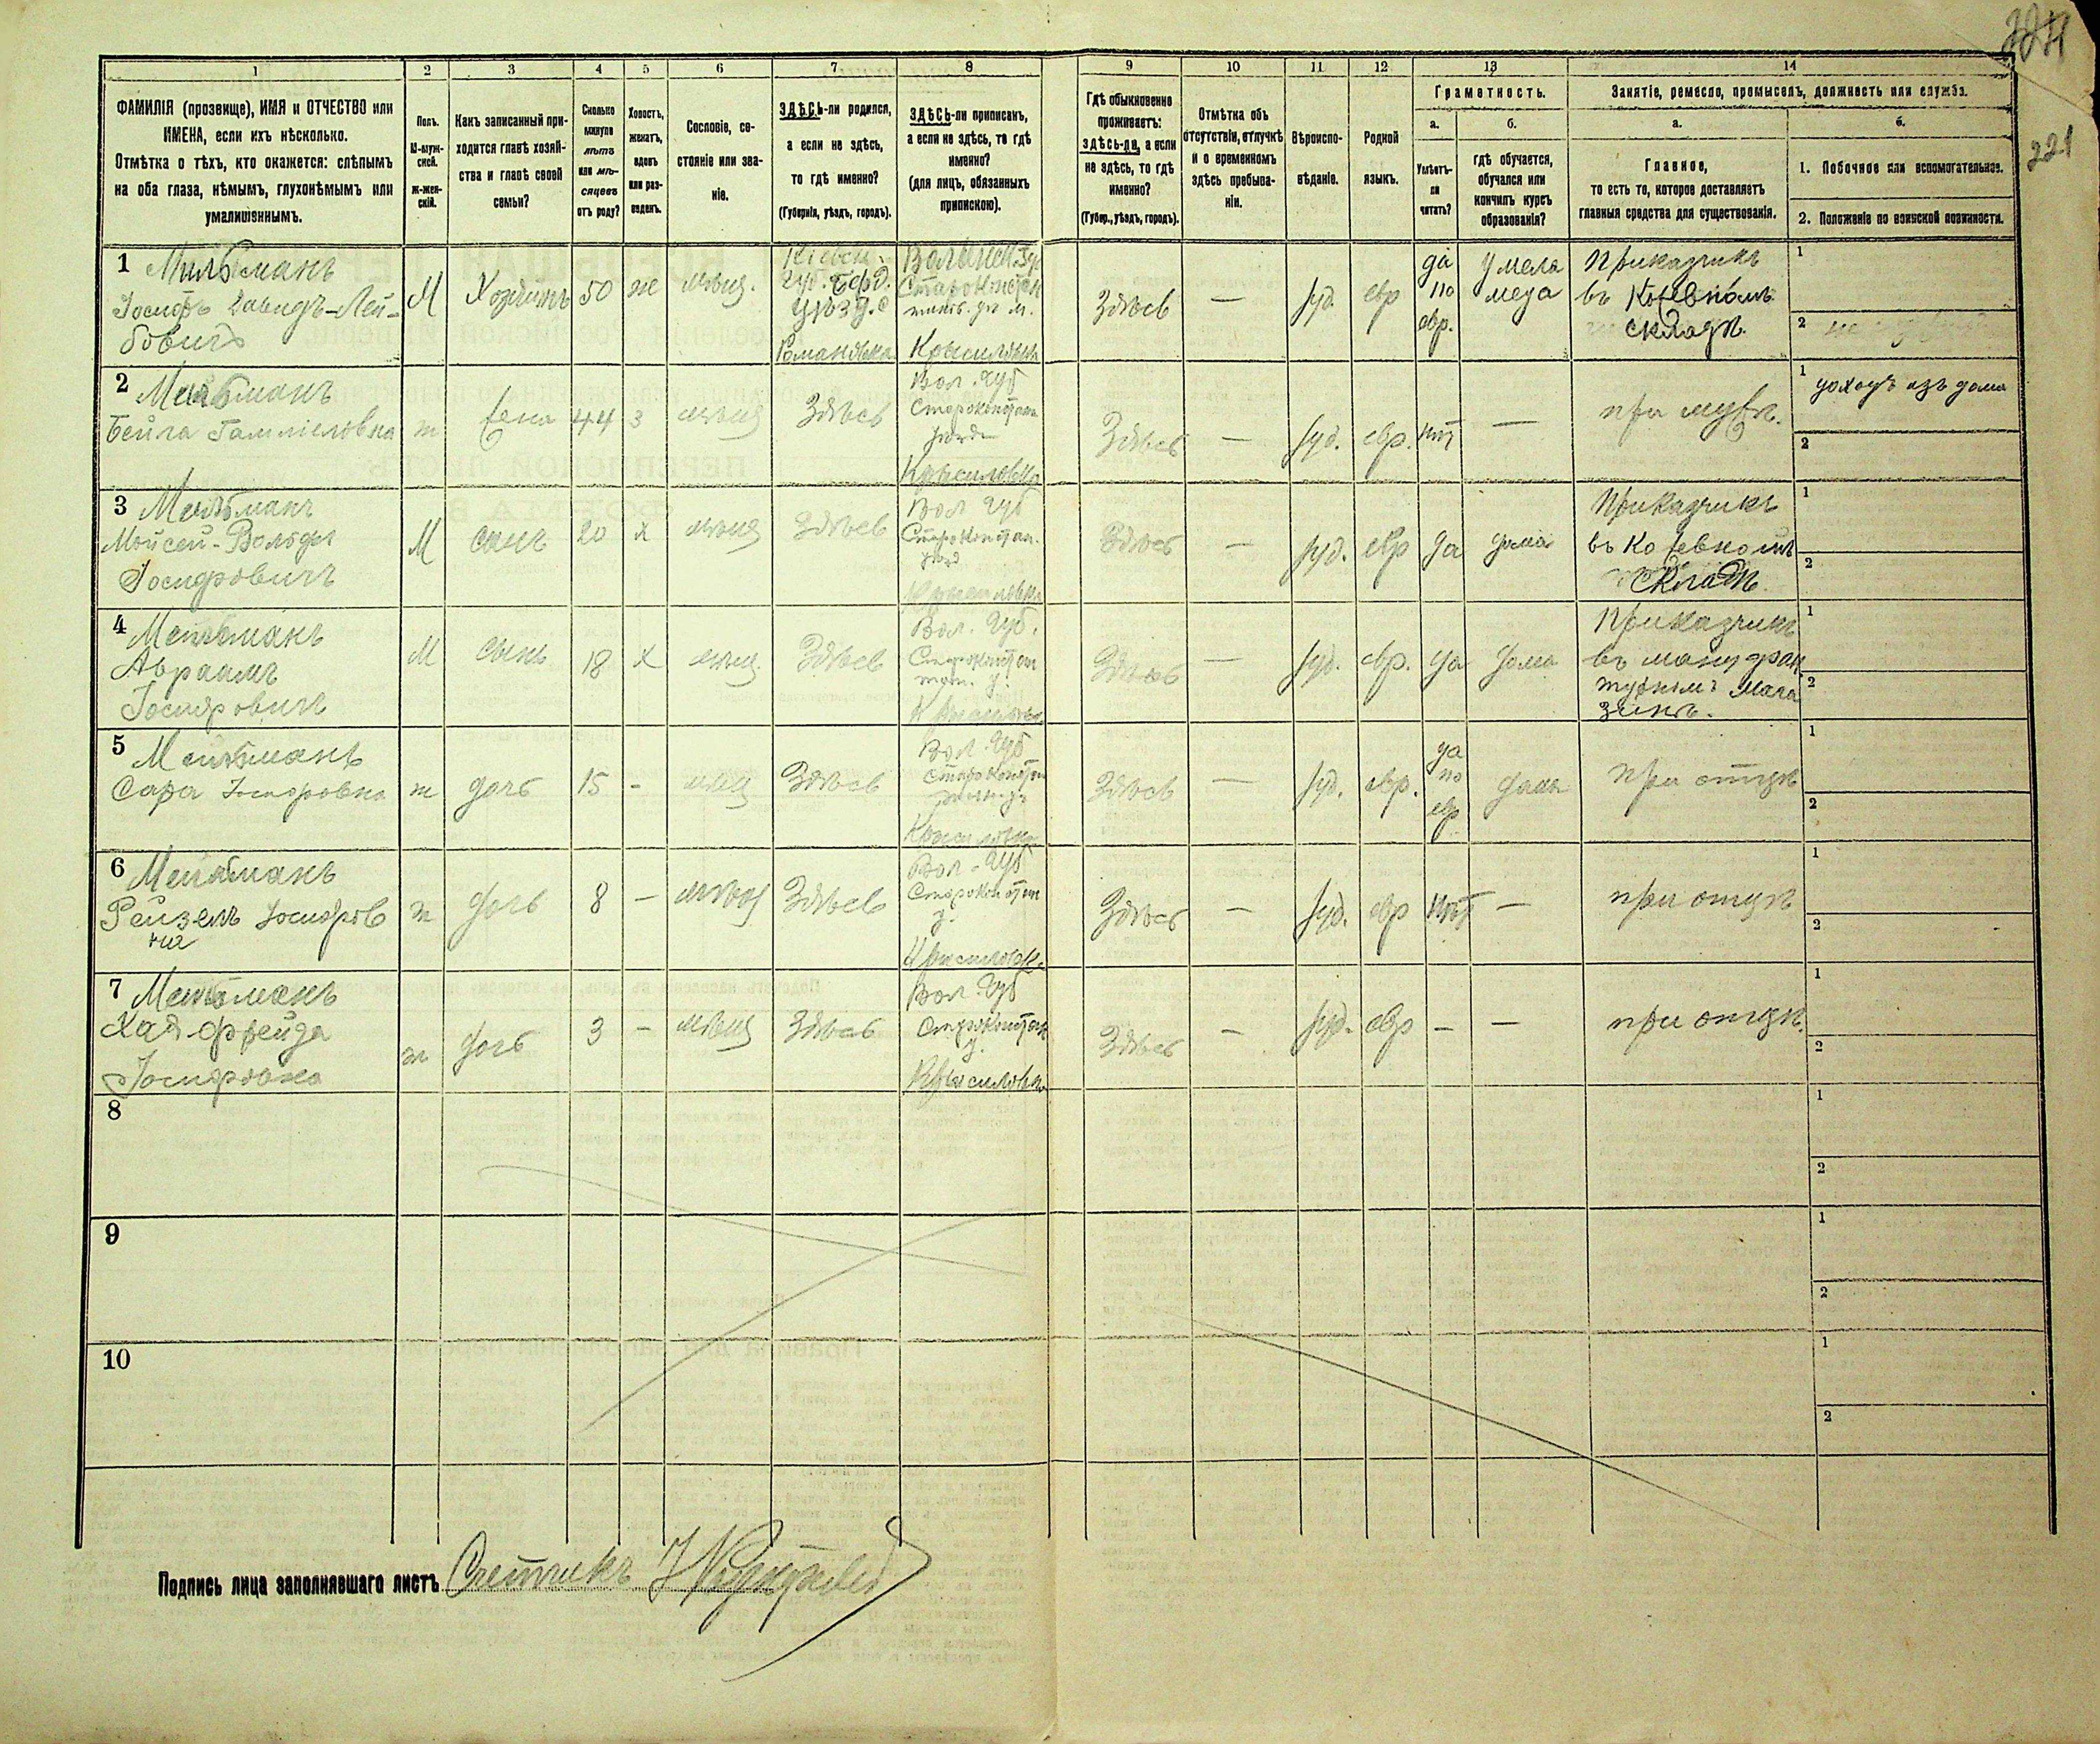 224
221
1
2
3
4
5
6
7
8
9
10
11
12
13
14
ФАМИЛІЯ (прозвище), ИМЯ и ОТЧЕСТВО или
ИМЕНА, если ихъ нѣсколько.
Отмѣтка о тѣхъ, кто окажется: слѣпымъ
на оба глаза, нѣмымъ, глухонѣмымъ или
умалишоннымъ.
Полъ.
М-муж-
ской.
ж-жен-
скій.
Какъ записанный при-
ходится главѣ хозяй-
ства и главѣ своей
семьи?
Сколько
минуло
лѣтъ
или мѣ-
сяцевъ
отъ роду?
Холостъ,
женатъ,
вдовъ
или раз-
веденъ.
Сословіе, со-
стояніе или зва-
ніе.
ЗДѢСЬ-ли родился,
а если не здѣсь,
то гдѣ именно?
(Губернія, уѣздъ, городъ).
ЗДѢСЬ-ли приписанъ,
а если не здѣсь, то гдѣ
именно?
(для лицъ, обязанныхъ
припискою).
Гдѣ обыкновенно
проживаетъ:
здѣсь-ли, а если
не здѣсь, то гдѣ
именно?
(Губер., уѣздъ, городъ).
Отмѣтка объ
отсутствіи, отлучкѣ
и о временномъ
здѣсь пребыва-
ніи.
Вѣроиспо-
вѣданіе.
Родной
языкъ.
Грамотность.
а.
Умѣетъ-
ли
читать?
б.
гдѣ обучается,
обучался или
кончилъ курсъ
образованія?
Занятіе, ремесло, промыселъ, должность или служба.
а.
Главное,
то есть то, которое доставляетъ
главныя средства для существованія.
б.
1. Побочное или вспомогательное.
2. Положеніе по воинской повинности.
1 Мильманъ
Іосифъ Давидъ-Лей-
бовичъ
М
Хозяинъ
50
же
мѣщ.
Кіевск.
Губ. Берд.
уѣзд. с
Романовка
Волынск. Гу
Староконстан
тинов. уѣ м.
Красиловъ
Здѣсь
—
іуд.
евр
да
по
евр.
у мела
меда
Приказчикъ
въ Кожевномъ
складѣ.
1
2
2 Мейльманъ
Бейла Гамшіеловна
ж
жена
44
з
мѣщ
Здѣсь
Вол. Губ
Староконстан
уѣзд
Красиловка
Здѣсь
—
іуд.
евр.
нѣт
—
при мужѣ.
1 доходъ изъ дома
2
3 Мейльманъ
Мойсей-Вольфъ
Іосифовичъ
М
сынъ
20
х
мѣщ
Здѣсь
Вол Губ
Староконстан.
уѣзд
Красиловка
Здѣсь
—
іуд.
евр
да
дома
Приказчикъ
въ Кожевномъ
складѣ.
1
2
4 Мейльманъ
Авраамъ
Іосифовичъ
М
сынъ
18
х
мѣщ.
Здѣсь
Вол. Губ.
Староконстан
тин. у
Красиловка
Здѣсь
—
іуд.
евр.
да
дома
Приказчикъ
въ мануфак
турномъ мага
зинѣ.
1
2
5 Мейльманъ
Сара Іосифовна
ж
дочь
15
-
мѣщ
Здѣсь
Вол. Губ
Староконстан
Красиловка
Здѣсь
—
іуд.
евр.
да
по
евр
дома
при отцѣ
1
2
6 Мейльманъ
Рейзель Іосифов
на
ж
дочь
8
—
мѣщ
Здѣсь
Вол. Губ
Староконстан
у.
Красиловка
Здѣсь
—
іуд.
евр
нѣт
—
при отцѣ
1
2
7 Мейльманъ
Хая Фрейда
Іосифовна
ж
дочь
3
—
мѣщ
Здѣсь
Вол. Губ
Староконстан
у.
Красиловка
Здѣсь
—
іуд.
евр
—
—
при отцѣ.
1
2
8
1
2
9
1
2
10
1
2
Подпись лица заполнявшаго листъ Счетчикъ